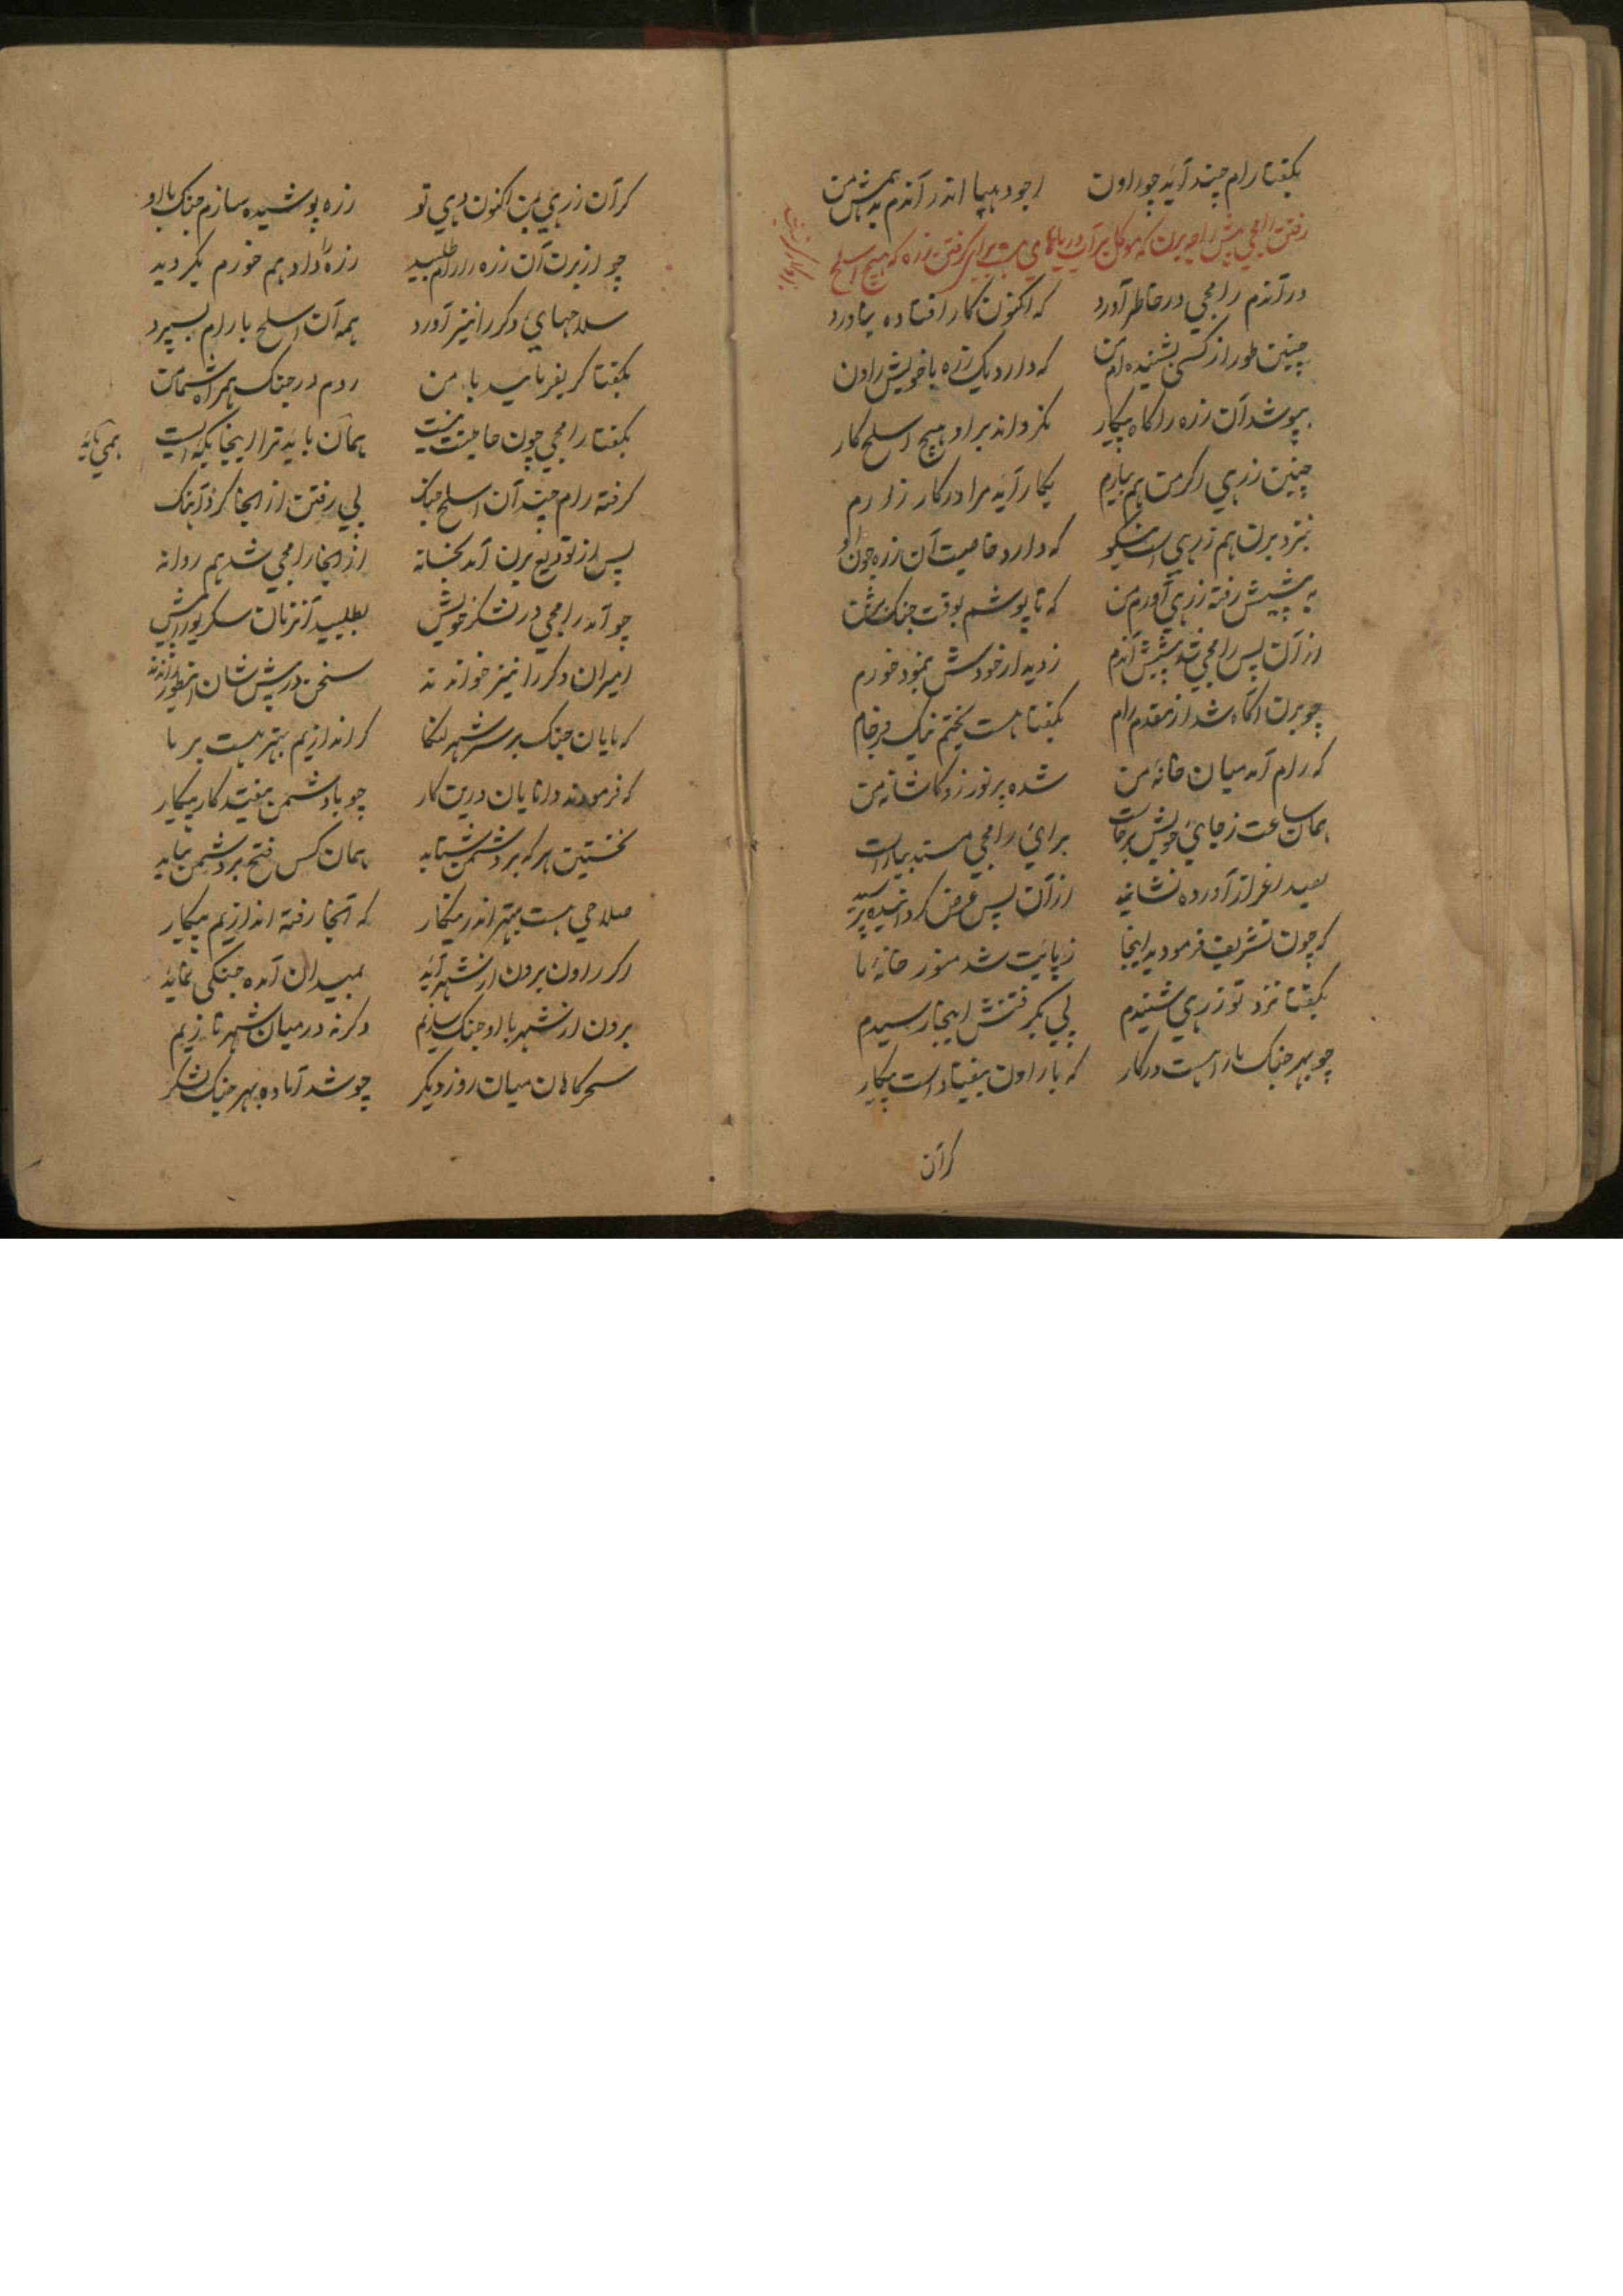 بکفتا رام چند آید چو راون اجودهیا اندر آندم پیش من
رفتن رامجی پیش راجه برن که موکل بر آب دریاهای است برای کرفتن زره که هیچ اسلح
در آندم رامجی در خاطر آورد که اکنون کار افتاده بما در
چنین طور از کسی بشنیده ام من که دارد یک زره با خویش راون
بپوشد آن زره را کاه پیکار نکرداند بر او هیچ اسلح کار
چنین زرهی اکر من هم بیارم بکار آید مرا در کار زارم
بنزد برن هم زرهی است نیکو که دارد خاصیت آن زره چون او
به پیشش رفته زرهی آورم من که تا پوشم بوقت جنک
از آن پس رامجی شد پیشش آندم ز دیدار خودش بنمود خورم
چو برن آکاه شد از مقدم رام بکفتا هست بختم نیک فرجام
که رام آمد میان خانهٔ من شده پر نور زو کاشانه من
همان ساعت ز جای خویش برخاست برای رامجی مسند بیاراست
بصد اعزاز آورده نشانید از آن پس عرض کرد
که چون تشریف فرمودید اینجا ز پایت شد منور خانهٔ ما
بکفتا نزد تو زرهی شنیدم پی بکرفتنش اینجا رسیدم
چو بهر جنک ما را هست درکار که با راون بیفتاد است پیکار
کر آن
کر آن زرهی بمن اکنون دهی تو زره پوشیده سازم جنک با او
چو از برن آن زره را رام طلبید زره را داد هم خورم بکردید
سلاحهای دکر را نیز آورد همه آن اسلح با رام بسپرد
بکفتا کر بفرمایید با من روم در جنک همراه شما من
بکفتا رامجی چون حاجتت نیست همان باید ترا اینجا
همی باید
کرفته رام چند آن اسلح جنک پی رفتن از انجا کرد آهنک
پس از تودیع برن آمد بخانه از انجا رامجی شد هم روانه
چو آمد رامجی در لشکر خویش بطلبید آنزمان سکریو را پیش
امیران دکر را نیز خواندند سخن در پیش شان اینطور راندند
که پایان جنک بر سر شهر لنکا کر اندازیم بهتر هست بر ما
که فرمودند دانایان درین کار چو با دشمن بیفتد کار پیکار
نخستین هر که بر دشمن شتابد همان کس فتح بر دشمن بیابد
صلاحی هست بهتر اندرینکار که آنجا رفته اندازیم پیکار
اکر راون برون از شهر آید بمیدان آمده جنکی نماید
برون از شهر با او جنک سازیم وکرنه در میان شهر تازیم
سحرکاهان میان روز دیکر چو شد آماده بهر جنک لشکر